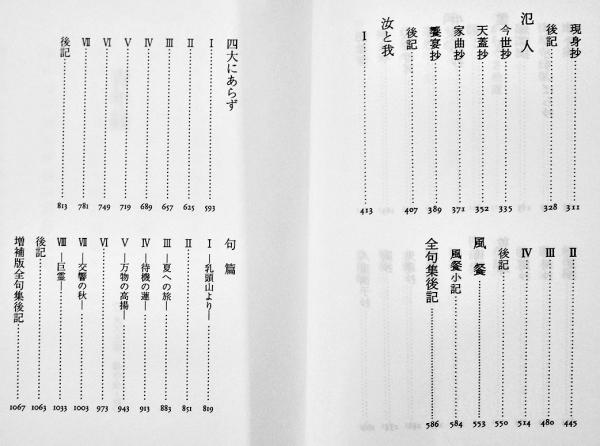 現身抄 311
後記 328
氾人
今世抄 335
天蓋抄 352
家曲抄 371
饗宴抄 389
後記 407
汝と我
Ⅰ 413
Ⅱ 445
Ⅲ 480
Ⅳ 514
後記 550
風餮 553
風餮小記 584
全句集後記 586
四大にあらず
Ⅰ 593
Ⅱ 625
Ⅲ 657
Ⅳ 689
Ⅴ 719
Ⅵ 749
Ⅶ 781
後記 813
句篇
Ⅰ―乳頭山より― 819
Ⅱ 851
Ⅲ―夏への旅― 883
Ⅳ―待機の蓮― 913
Ⅴ―万物の高揚― 943
Ⅵ 973
Ⅶ―交響の秋― 1003
Ⅷ―巨霊― 1033
後記 1063
増補版全句集後記 1067